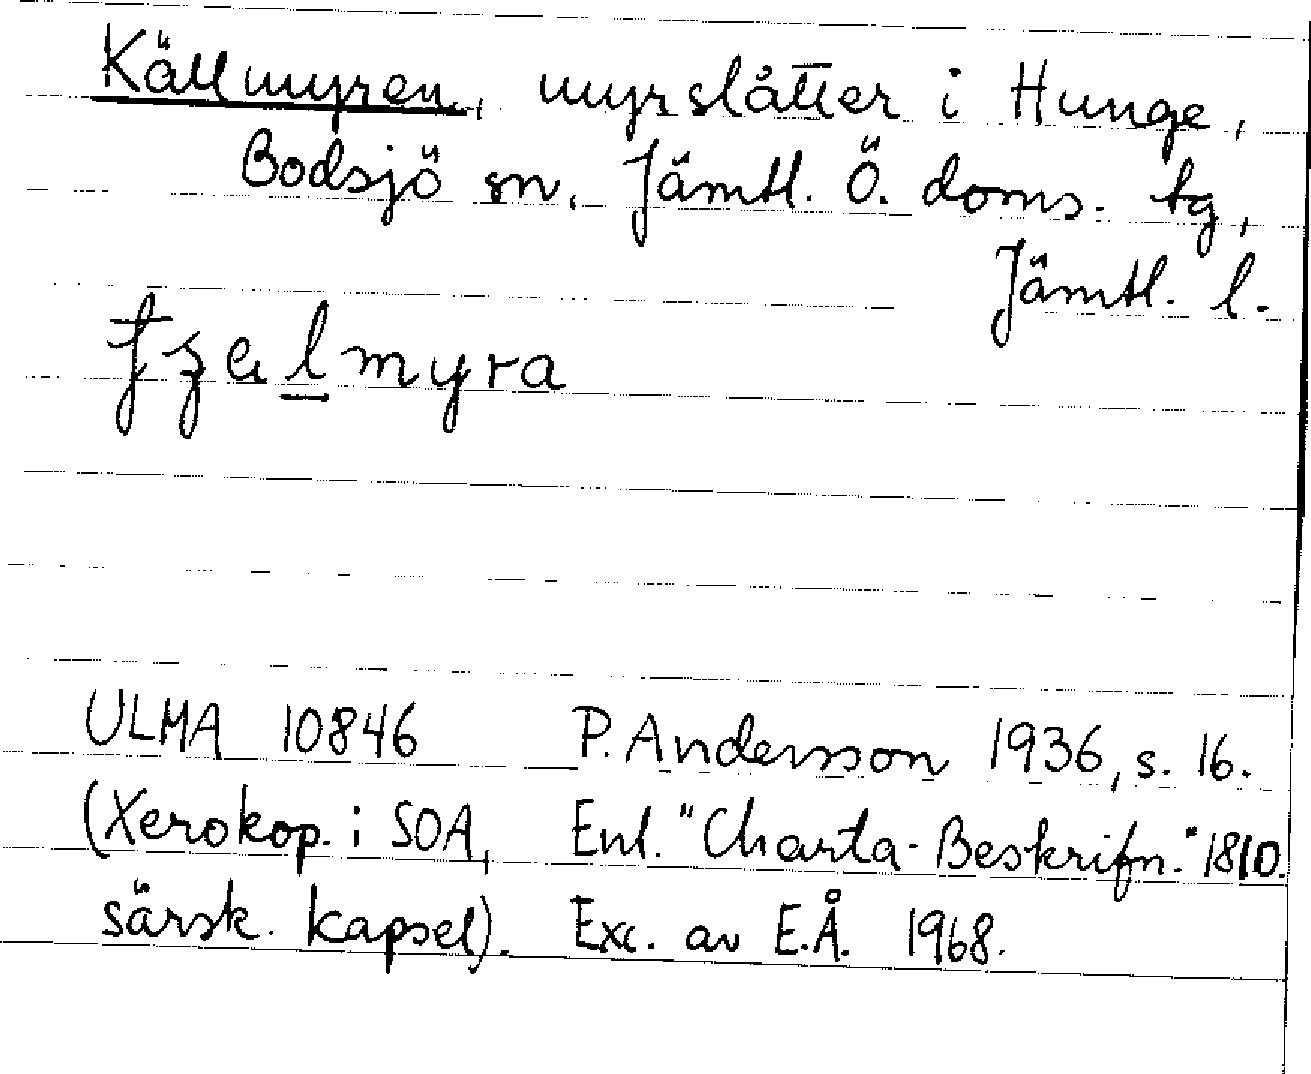 Källmyren, myrslåtter i Hunge,
Bodsjö sn. Jämtl. Ö. doms. tg,
Jämtl. l.
myra
ULMA 10846 P. Andersson 1936, s. 16.
(Xerokop. i SOA, Enl. "Charta-Beskrifn." 1810.
särsk. kapsel). Exc. av E.Å. 1968.